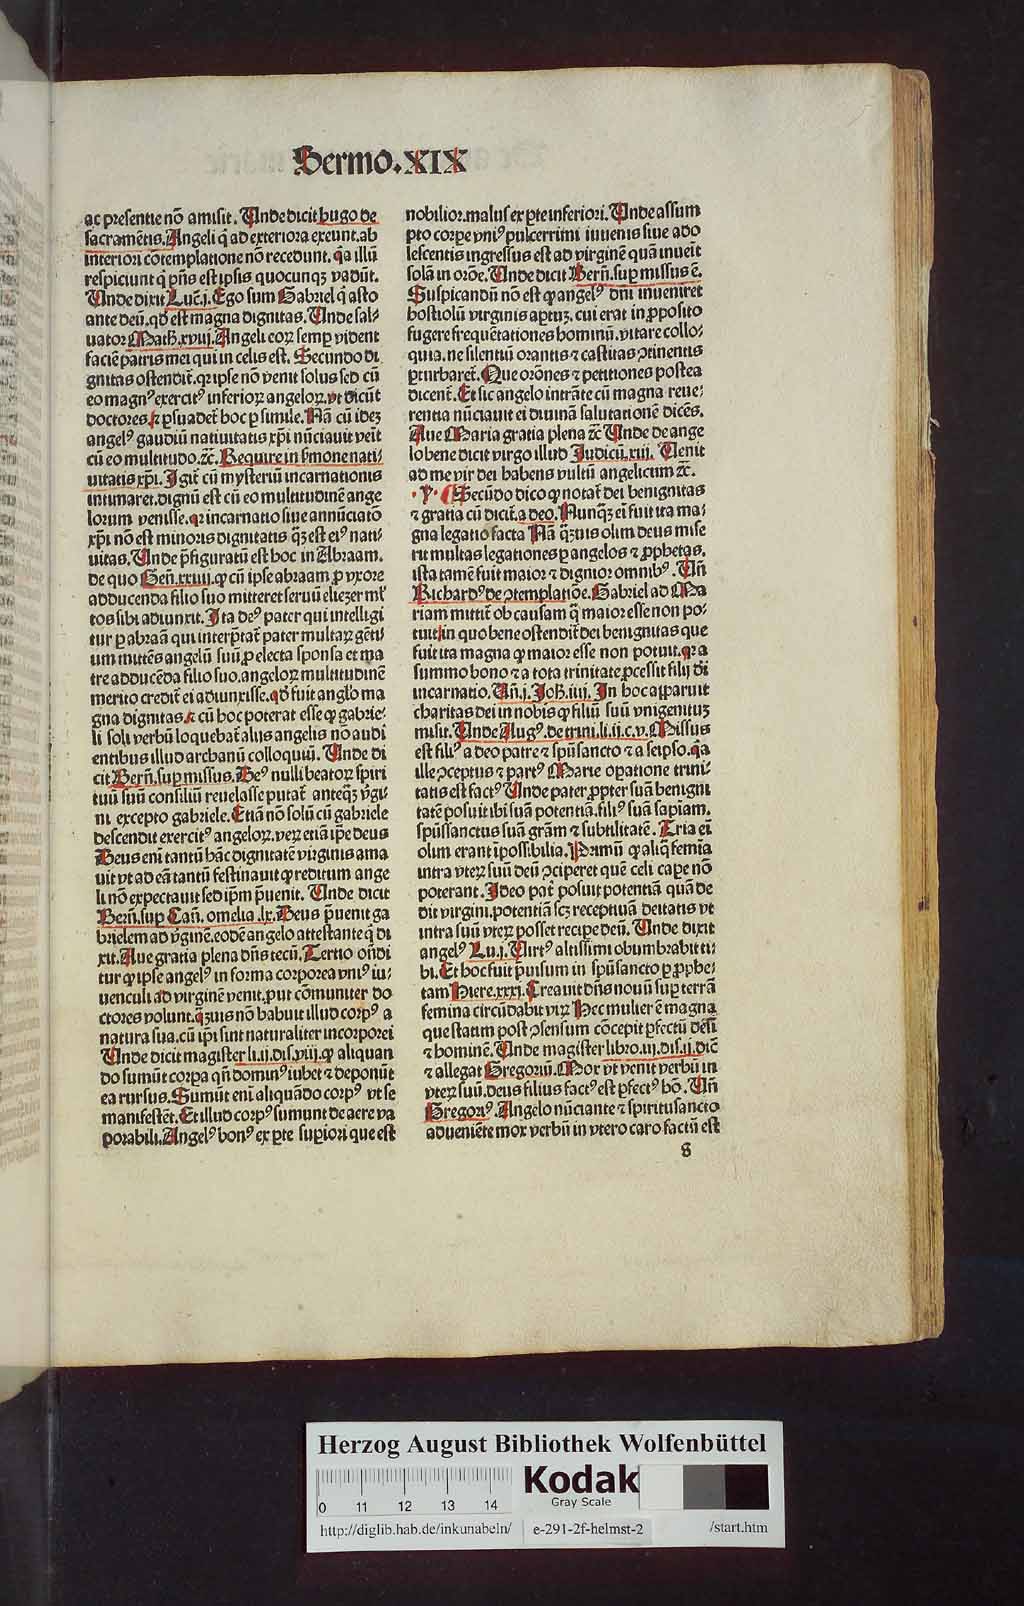 Sermo.XIX
ac presentie nō amisit. Unde dicit hugo de
sacramētis. Angeli q̄ ad exteriora exeunt. ab
interiori cōtemplatione nō recedunt. q̄a illū
respiciunt q̄ pn̄s est ipsis quocunqꝫ vadūt.
Unde dixit Luc̄.j. Ego sum Gabriel q̄ asto
ante deū. qđ est magna dignitas. Unde sal⸗
uator Math̄.xviij. Angeli eoꝝ semꝑ vident
faciē patris mei qui in celis est. Secundo di
gnitas ostendit᷑. qꝛ ipse nō venit solus sed cū
eo magnꝰ exercitꝰ inferioꝝ angeloꝝ. vt dicūt
doctores ⁊ ꝑsuadet᷑ hoc ꝑ simile. Nā cū idez
angelꝰ gaudiū natiuitatis xp̄i nūciauit veīt
cū eo multitudo. ⁊c̄. Require in s̄mone nati⸗
uitatis xp̄i. Igit᷑ cū mysteriū incarnationis
intimaret. dignū est cū eo multitudinē ange
lorum venisse. qꝛ incarnatio siue annūciatō
xp̄i nō est minoris dignitatis q̄ꝫ est eiꝰ nati⸗
uitas. Unde p̄figuratū est hoc in Abraam.
de quo Gen̄.xxiiij. ꝙ cū ipse abraam ꝓ vxore
adducenda filio suo mitteret seruū eliezer ml̄
tos sibi adiunxit. Ita deꝰ pater qui intelligi
tur ꝑ abraā qui interp̄tat᷑ pater multaꝝ gēti⸗
um mittēs angelū suū ꝓ electa sponsa et ma
tre adducēda filio suo. angeloꝝ multitudinē
merito credit᷑ ei adiunxisse. qđ fuit angl̓o ma
gna dignitas ⁊ cū hoc poterat esse ꝙ gabrie⸗
li soli verbū loquebat᷑ alijs angelis nō audi
entibus illud archanū colloquiū. Unde di
cit Bern̄. suꝑ missus. Deꝰ nulli beatoꝝ spiri
tuū suū consiliū reuelasse putat᷑ anteqꝫ v̓gi⸗
ni excepto gabriele. Etiā nō solū cū gabriele
descendit exercitꝰ angeloꝝ. veꝝ etiā ip̄e deus
Deus eni tantū hāc dignitatē virginis ama
uit vt ad eā tantū festinauit ꝙ reditum ange
li nō expectauit sed ip̄m p̄uenit. Unde dicit
Bern̄. suꝑ Can̄. omelia .lx. Deus p̄uenit ga
brielem ad v̓ginē. eodē angelo attestante q̄ di
xit. Aue gratia plena dn̄s tecū. Tertio on̄di
tur ꝙ ipse angelꝰ in forma corporea vniꝰ iu⸗
uenculi ad virginē venit. ꝓut cōmuniter do
ctores volunt. q̄ꝫuis nō habuit illud corpꝰ a
natura sua. cū ip̄i sint naturaliter incorporei
Unde dicit magister li.ij.dis.viij. ꝙ aliquan
do sumūt corpa qn̄ dominꝰ iubet ⁊ deponūt
ea rursus. Sumūt eni aliquādo corpꝰ vt se
manifestēt. Et illud corpꝰ sumunt de aere va
porabili. Angelꝰ bonꝰ ex ꝑte suꝑiori que est
nobilior. malus ex ꝑte inferiori. Unde assum
pto corpe vniꝰ pulcerrimi iuuenis siue ado
lescentis ingressus est ad virginē quā inueīt
solā in orōe. Unde dicit Bern̄. suꝑ missus ē.
Suspicandū nō est ꝙ angelꝰ dn̄i inueniret
hostiolū virginis aꝑtuꝫ. cui erat in ꝓposito
fugere frequētationes hominū. vitare collo⸗
quia. ne silentiū orantis ⁊ castitas ꝯtinentis
ꝑturbaret᷑. Que orōnes ⁊ petitiones postea
dicent᷑. Et sic angelo intrāte cū magna reue⸗
rentia nūciauit ei diuinā salutationē dicēs.
Aue Maria gratia plena ⁊c̄ Unde de ange
lo bene dicit virgo illud Judicū.xiij. Uenit
ad me vir dei habens vultū angelicum ⁊c̄.
·Y· ¶ Secūdo dico ꝙ notat᷑ dei benignitas
⁊ gratia cū dicit᷑. a deo. Nunqꝫ ei fuit ita ma⸗
gna legatio facta Nā q̄ꝫuis olim deus mise
rit multas legationes ꝑ angelos ⁊ ꝓphetas.
ista tamē fuit maior ⁊ dignior omnibꝰ. Un̄
Richardꝰ de ꝯtemplatiōe. Gabriel ad Ma
riam mittit᷑ ob causam q̄ maior esse non po⸗
tuit. in quo bene ostendit᷑ dei benignitas que
fuit ita magna ꝙ maior esse non potuit. qꝛ a
summo bono ⁊ a tota trinitate ꝓcessit filij di
incarnatio. Un̄.j. Joh̄.iiij. In hoc apparuit
charitas dei in nobis ꝙ filiū suū vnigenituꝫ
misit. Unde Augꝰ. de trini.li.ij.c.v. Missus
est filiꝰ a deo patre ⁊ spūsancto ⁊ a seipso. q̄a
ille ꝯceptus ⁊ partꝰ Marie oꝑatione trini⸗
tatis est factꝰ Unde pater ꝓpter suā benigni
tatē posuit ibi suā potentiā. filiꝰ suā sapiam.
spūssanctus suā grām ⁊ subtilitatē. Tria ei
olim erant īpossibilia. Primū ꝙ aliq̄ femia
intra vteꝝ suū deū ꝯciperet quē celi caꝑe nō
poterant. Ideo pat᷑ posuit potentiā quā de
dit virgini. potentiā scꝫ receptiuā deitatis vt
intra suū vteꝝ posset recipe deū. Unde dixit
angelꝰ Lu.j. Uirtꝰ altissimi obumbrabit ti⸗
bi. Et hoc fuit p̄uisum in spūsancto ꝑ ꝓphe⸗
tam Hiere.xxxj. Creauit dn̄s nouū suꝑ terrā
femina circūdabit viꝝ Hec mulier ē magna
que statim post ꝯsensum cōcepit ꝑfectū deū
⁊ hominē. Unde magister libro.iij.dis.ij. dic̄
⁊ allegat Gregoriū. Mox vt venit verbū in
vteꝝ suū. deus filius factꝰ est ꝑfectꝰ hō. Un̄
Gregoriꝰ. Angelo nūciante ⁊ spiritusancto
adueniēte mox verbū in vtero caro factū est
s
Herzog August Bibliothek Wolfenbüttel
0 11 12 13 14
Kodak
Gray Scale
http://diglib.hab.de/inkunabeln/ e-291-2f-helmst-2 /start.htm